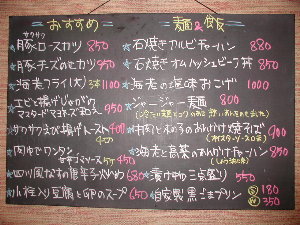 おすすめ
サクサク
豚ロースカツ 850
豚チーズのせカツ 950
海老フライ(大) 3本 1100
エビと揚げじゃがの
マスタードマヨネーズ和え 950
サクサクえび揚げトースト 400
肉ゆでワンタン
甘辛ゴマソース 450
四川風なすの唐辛子炒め 680
小柱入り豆腐とのスープ 650
麺&飯
石焼きカルビチャーハン 880
石焼きオムハッシュビーフ丼 850
海老の塩味おこげ 1000
ジャージャー麺 800
肉ときのこのあんかけ焼そば 900
海老と高菜のあんかけチャーハン 850
(しょうゆ味)
漬け物三点盛り 550
自家製黒ごまプリン S 180
W 350